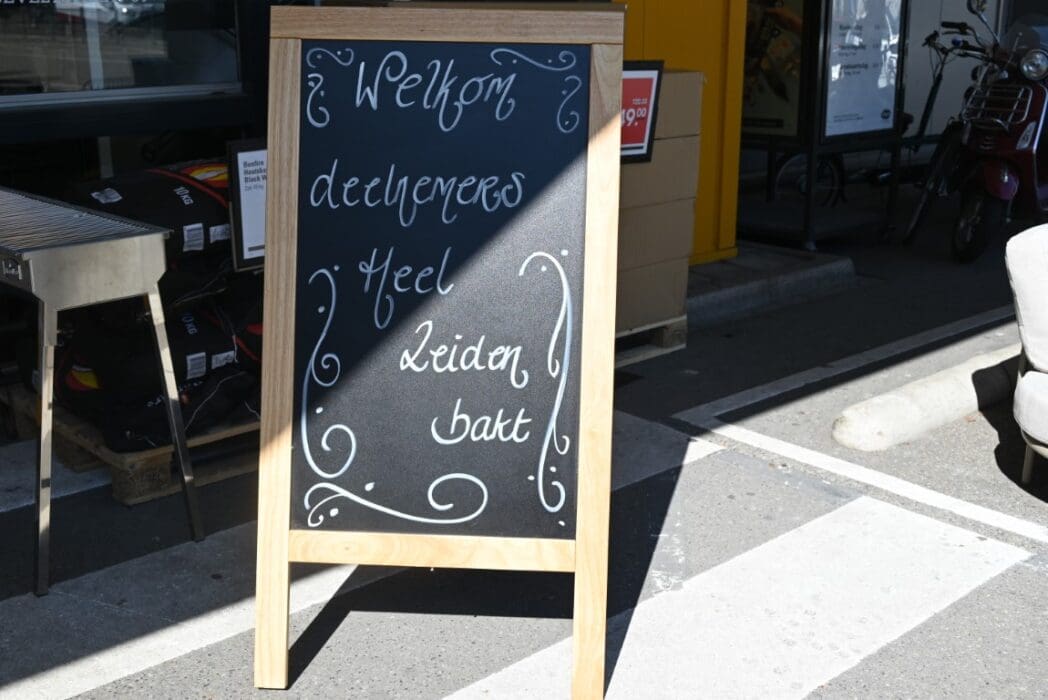 Welkom
deelnemers
Heel
Leiden
bakt
10 KG
KG
9.00